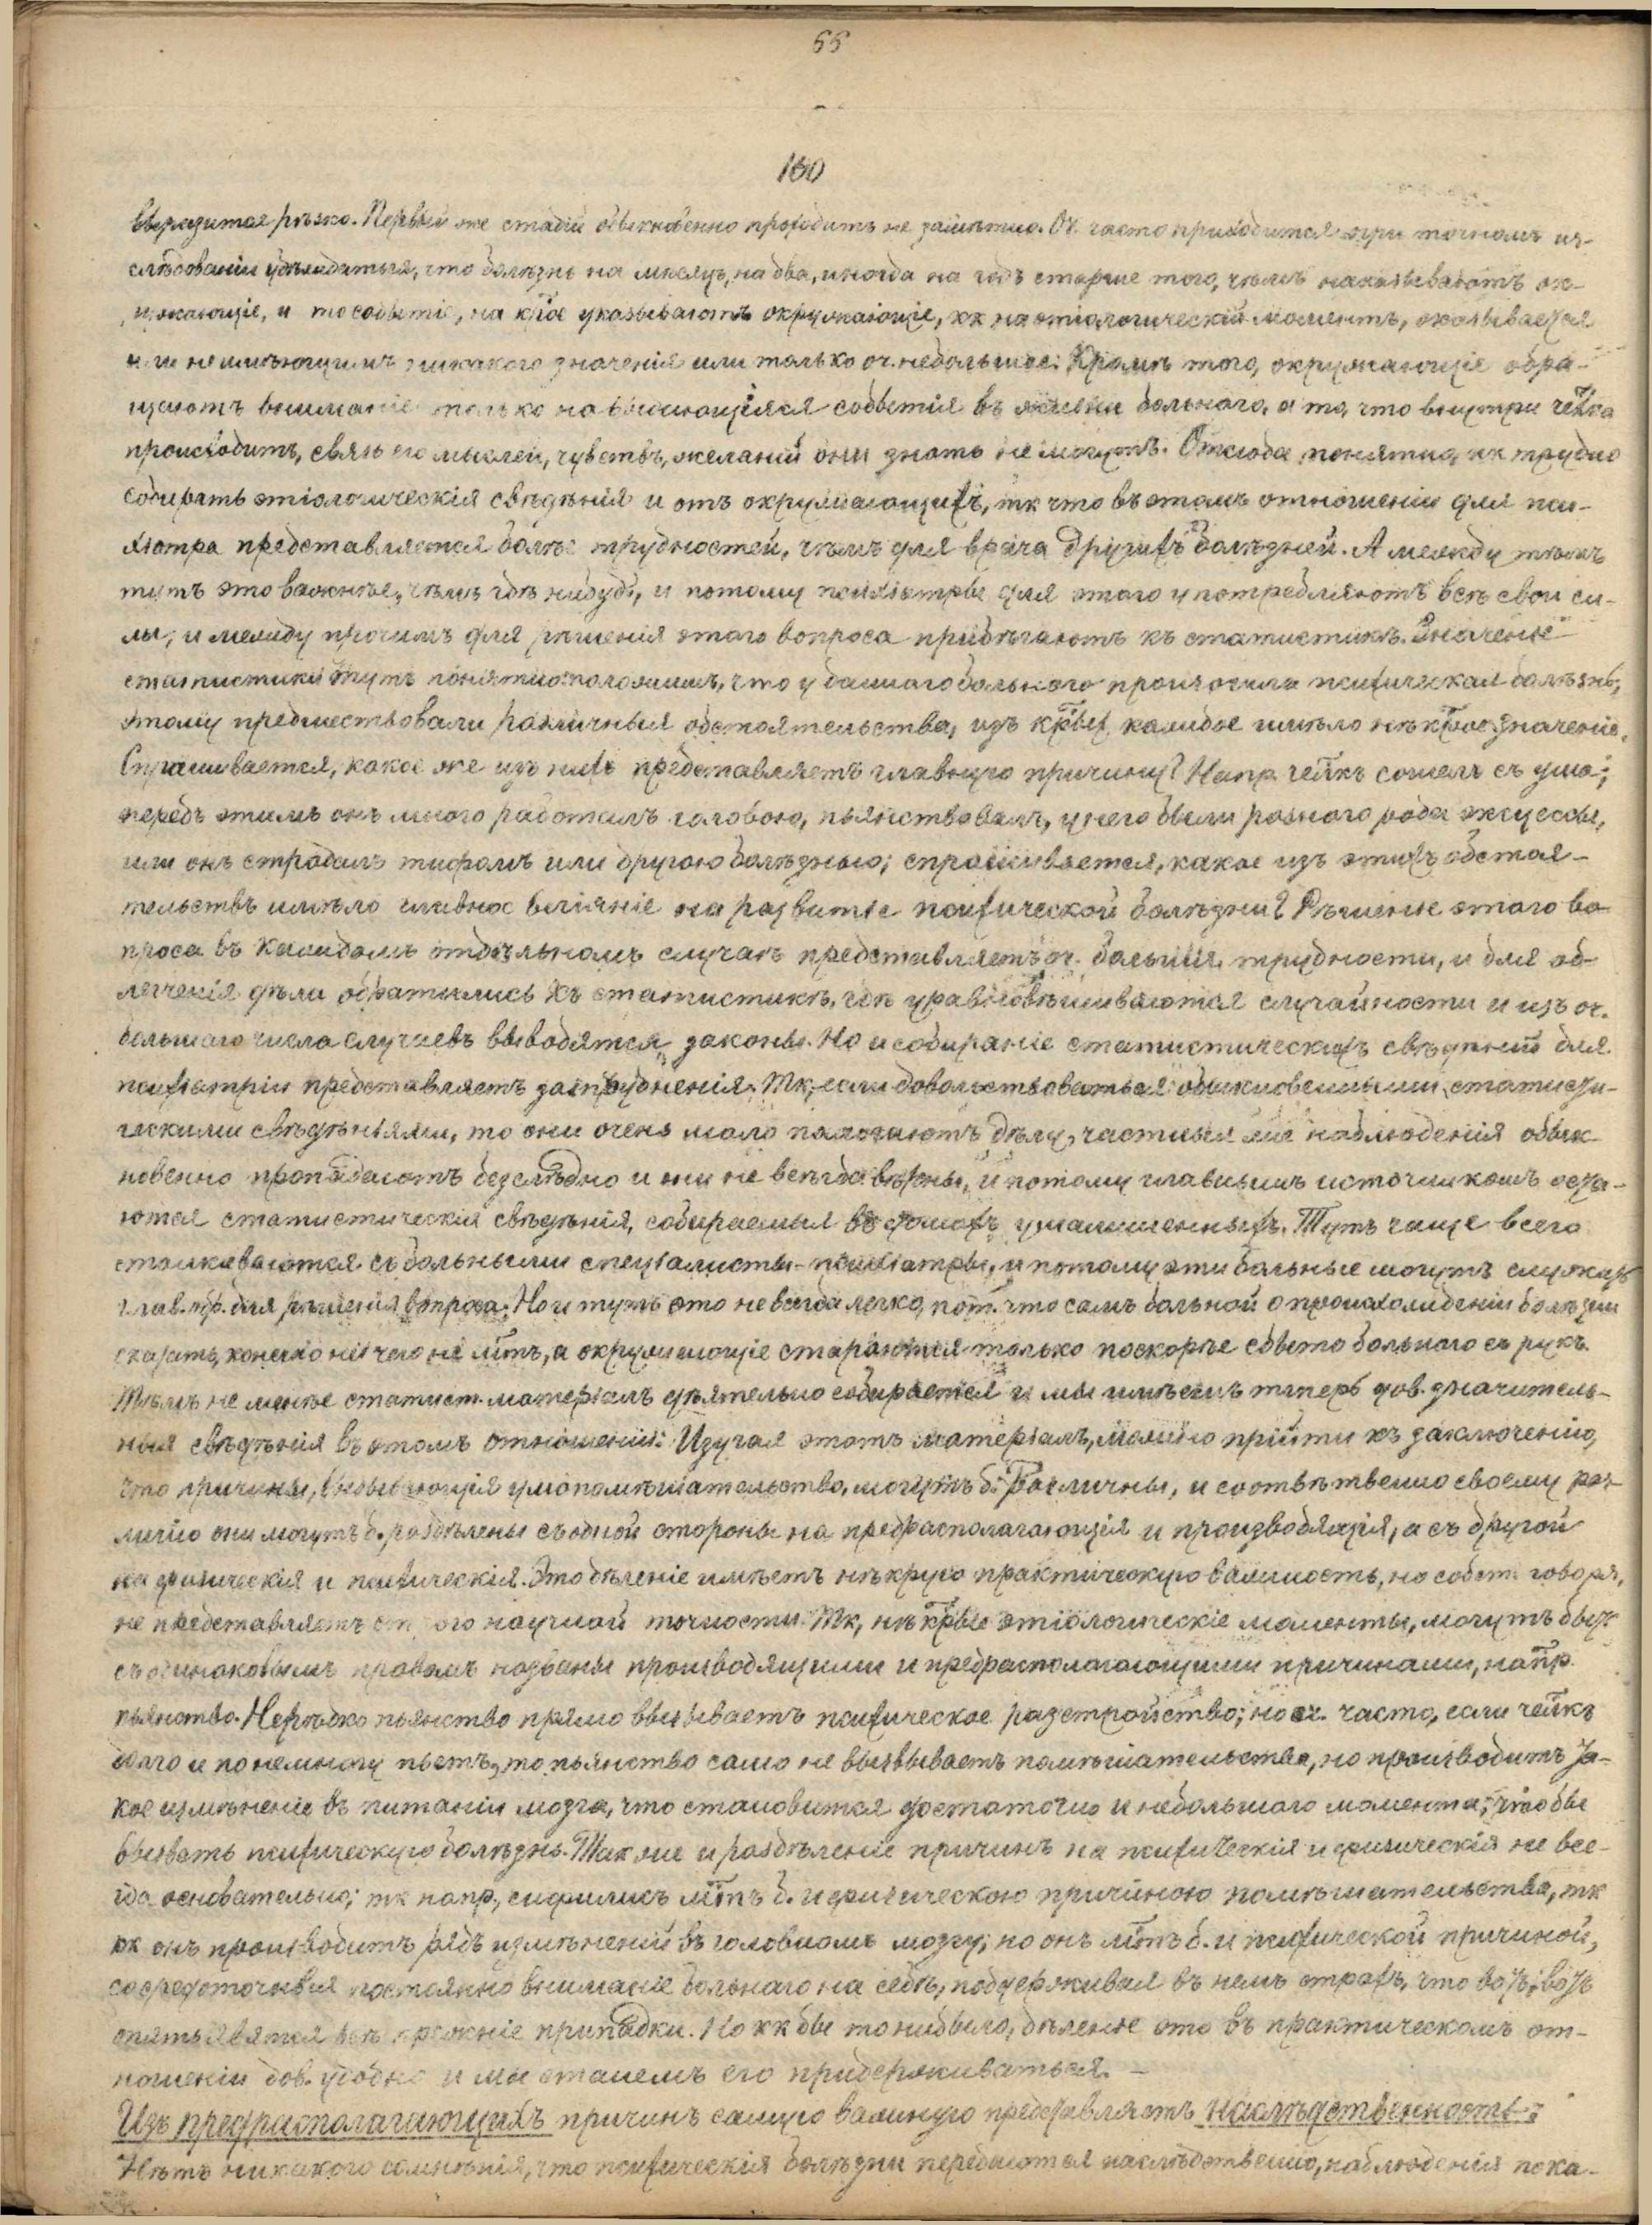 55
130
выразится рѣзко. Первый же стадій обыкновенно проходитъ не замѣтно. Оч. часто приходится при точномъ из-
слѣдованіи убѣждаться, что болѣзнь на мѣсяцъ, на два, иногда на годъ старше того, чѣмъ показываютъ ок-
ружающіе, и то событіе, на кᵗое указываютъ окружающіе, кк на этіологическій моментъ, оказывается
или не имѣющимъ никакого значенія или только оч. небольшое. Кромѣ того, окружающіе обра-
щаютъ вниманіе только на выдающіяся событія въ жизни больнаго, а то, что внутри челка
происходитъ, связь его мыслей, чувствъ, желаній они знать не могутъ. Отсюда понятно, кк трудно
собирать этіологическія свѣдѣнія и отъ окружающихъ, тк что въ этомъ отношеніи для пси-
хіатра представляется болѣе трудностей, чѣмъ для врача другихъ болѣзней. А между тѣмъ
тутъ это важнѣе, чѣмъ гдѣ нибудь, и потому психіатры для этого употребляютъ всѣ свои си-
лы, и между прочимъ для рѣшенія этого вопроса прибѣгаютъ къ статистикѣ. Значеніе
статистики тутъ понятно: положимъ, что у даннаго больного произошла психическая болѣзнь,
этому предшествовали различныя обстоятельства, изъ крыхъ каждое имѣло нѣкрое значеніе.
Спрашивается, какое же изъ нихъ представляетъ главную причину? Напр. челкъ сошелъ съ ума;
передъ этимъ онъ много работалъ головою, пьянствовалъ, у него были разнаго рода эксцессы,
или онъ страдалъ тифомъ или другою болѣзнью; спрашивается, какое изъ этихъ обстоя-
тельствъ имѣло главное вліяніе на развитіе психической болѣзни? Рѣшеніе этого во-
проса въ каждомъ отдѣльномъ случаѣ представляетъ оч. большія трудности, и для об-
легченія дѣла обратились къ статистикѣ, гдѣ уравновѣшиваются случайности и изъ оч.
большаго числа случаевъ выводятся законы. Но и собираніе статистическихъ свѣдѣній для
психіатріи представляетъ затрудненія. Тк, если довольствоваться обыкновенными статисти-
ческими свѣдѣніями, то они очень мало помогаютъ дѣлу, частныя же наблюденія обык-
новенно пропадаютъ безслѣдно и не всегда вѣрны, и потому главнымъ источникомъ оста-
ются статистическія свѣдѣнія, собираемыя въ домахъ умалишенныхъ. Тутъ чаще всего
сталкиваются съ больными спеціалисты-психіатры, и потому эти больные могутъ служить
глав. обр. для рѣшенія вопроса. Но и тутъ это не всегда легко, пот. что самъ больной о происхожденіи болѣзни
сказать, конечно ничего не мᵗтъ, а окружающіе стараются только поскорѣе сбыть больнаго съ рукъ.
Тѣмъ не менѣе статист. матеріалъ дѣятельно собирается и мы имѣемъ теперь дов. значитель-
ныя свѣдѣнія въ этомъ отношеніи. Изучая этотъ матеріалъ, можно прійти къ заключенію,
что причины, вызывающія умопомѣшательство, могутъ б. различны, и соотвѣтственно своему раз-
личію они могутъ б. раздѣлены съ одной стороны на предрасполагающія и производящія, а съ другой
на физическія и психическія. Это дѣленіе имѣетъ нѣкрую практическую важность, но собст. говоря,
не представляетъ научной точности. Тк, нѣкрые этіологическіе моменты, могутъ быть
съ одинаковымъ правомъ названы производящими и предрасполагающими причинами, напр.
пьянство. Нерѣдко пьянство прямо вызываетъ психическое разстройство; но оч. часто, если челкъ
долго и понемногу пьетъ, то пьянство само не вызываетъ помѣшательства, но производитъ та-
кое измѣненіе въ питаніи мозга, что становится достаточно и небольшаго момента, чтобы
вызвать психическую болѣзнь. Также и раздѣленіе причинъ на психическія и физическія не все-
гда основательно; тк напр., сифилисъ мᵗтъ б. и физическою причиною помѣшательства, тк
кк онъ производитъ рядъ измѣненій въ головномъ мозгу; но онъ мᵗтъ б. и психической причиной,
сосредоточивая постоянно вниманіе больнаго на себѣ, поддерживая въ немъ страхъ, что вотъ, вотъ
опять явятся всѣ прежніе припадки. Но кк бы то нибыло, дѣленіе это въ практическомъ от-
ношеніи дов. удобно и мы станемъ его придерживаться. —
Изъ предрасполагающихъ причинъ самую важную представляетъ наслѣдственность:
Нѣтъ никакого сомнѣнія, что психическія болѣзни передаются наслѣдственно, наблюденія пока-